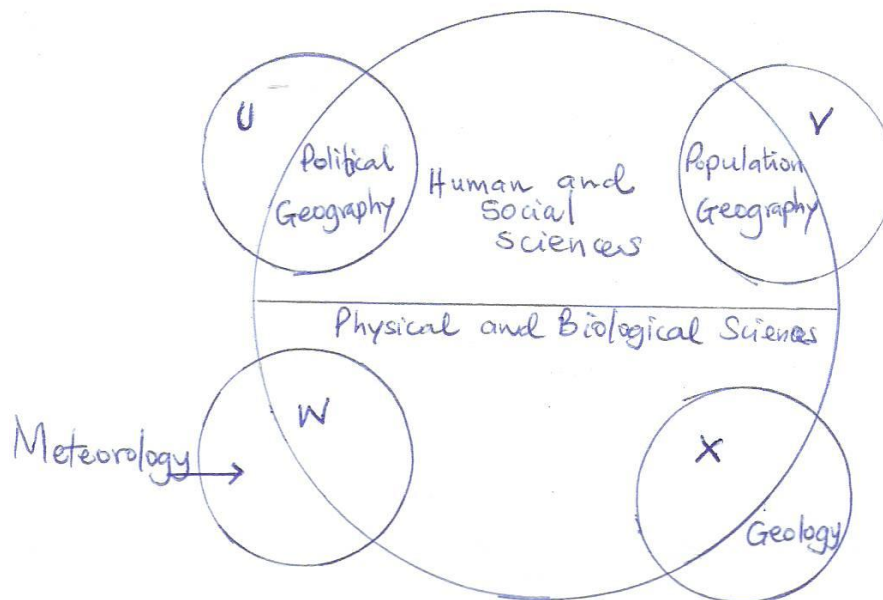 U
Political
Geography
Human and
Social
Sciences
V
Population
Geography
Physical and Biological Sciences
Meteorology
W
X
Geology